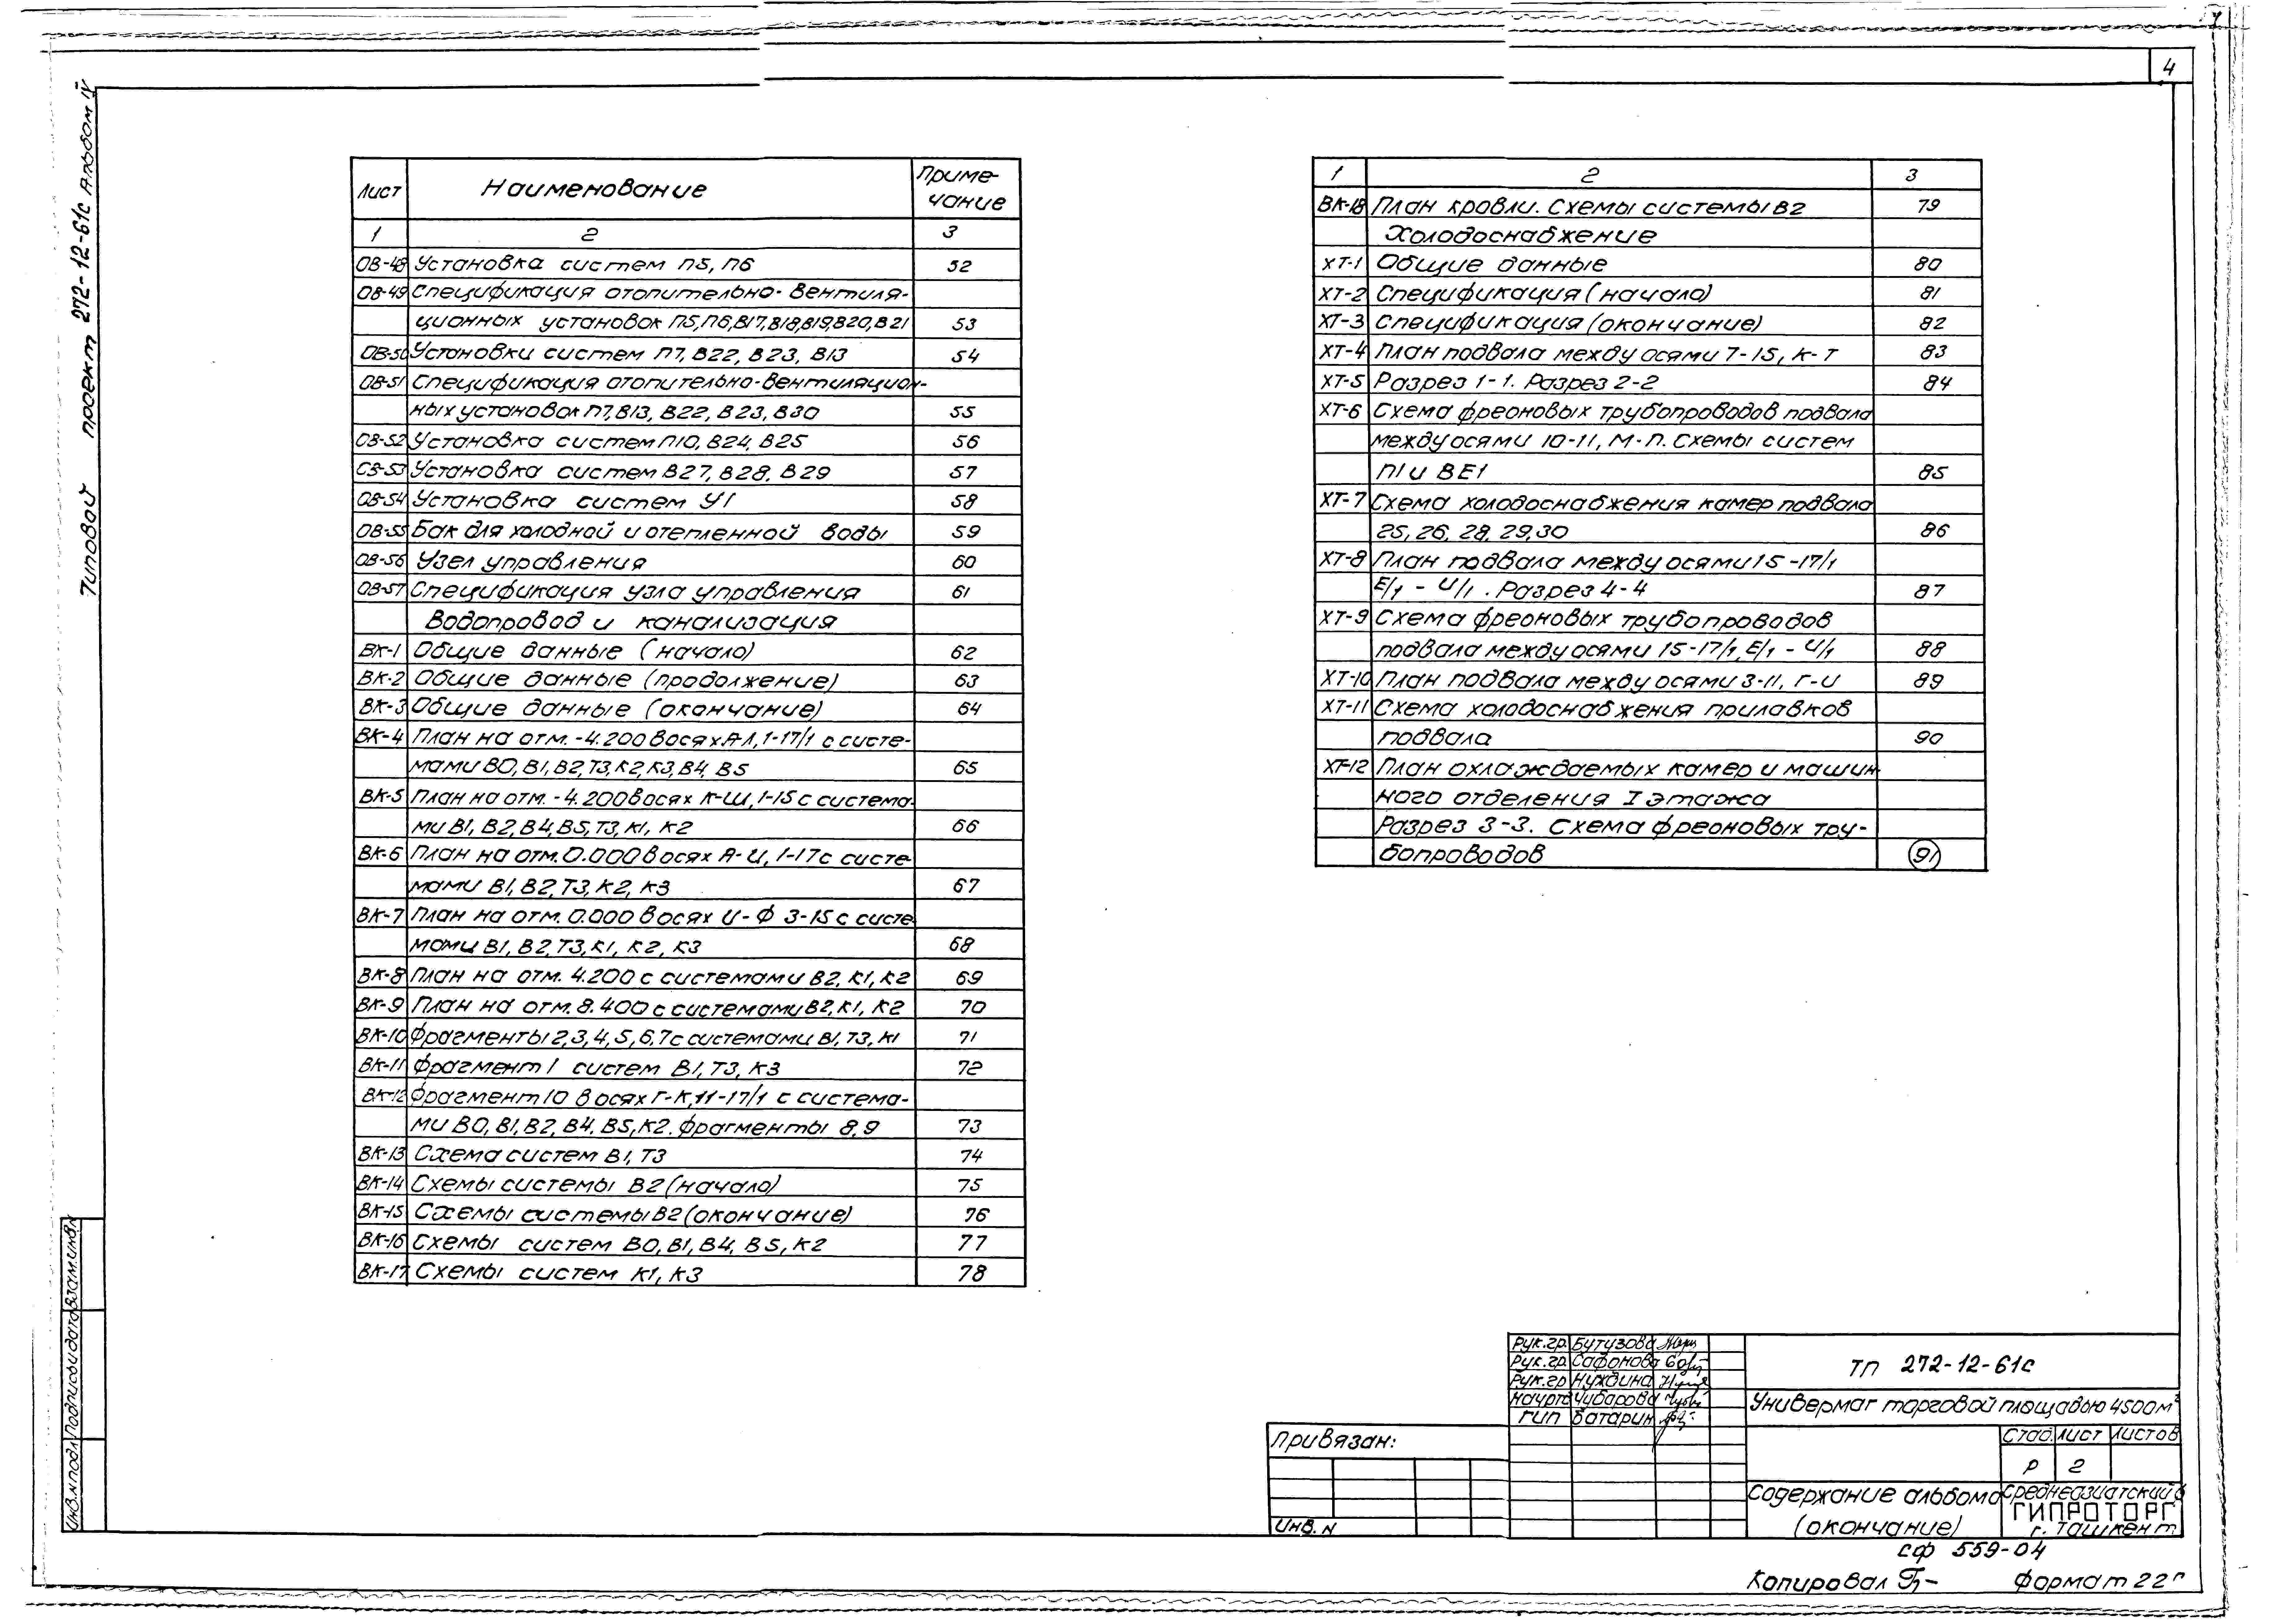 4
Типовой проект 272-12-61с Альбом IV
Лист Наименование Приме-
чание
1 2 3
ОВ-48 Установка систем П5, П6 52
ОВ-49 Спецификация отопительно-вентиля-
ционных установок П5, П6, В17, В18, В19, В20, В21 53
ОВ-50 Установки систем П7, В22, В23, В13 54
ОВ-51 Спецификация отопительно-вентиляцион-
ных установок П7, В13, В22, В23, В30 55
ОВ-52 Установка систем П10, В24, В25 56
ОВ-53 Установка систем В27, В28, В29 57
ОВ-54 Установка систем У1 58
ОВ-55 Бак для холодной и отепленной воды 59
ОВ-56 Узел управления 60
ОВ-57 Спецификация узла управления 61
Водопровод и канализация
ВК-1 Общие данные (начало) 62
ВК-2 Общие данные (продолжение) 63
ВК-3 Общие данные (окончание) 64
ВК-4 План на отм. -4.200 в осях А-Л, 1-17/1 с систе-
мами В0, В1, В2, Т3, К2, К3, В4, В5 65
ВК-5 План на отм. -4.200 в осях К-Ш, 1-15 с система-
ми В1, В2, В4, В5, Т3, К1, К2 66
ВК-6 План на отм. 0.000 в осях А-И, 1-17 с систе-
мами В1, В2, Т3, К2, К3 67
ВК-7 План на отм. 0.000 в осях И-Ф 3-15 с систе-
мами В1, В2, Т3, К1, К2, К3 68
ВК-8 План на отм. 4.200 с системами В2, К1, К2 69
ВК-9 План на отм. 8.400 с системами В2, К1, К2 70
ВК-10 Фрагменты 2, 3, 4, 5, 6, 7 с системами В1, Т3, К1 71
ВК-11 Фрагмент 1 систем В1, Т3, К3 72
ВК-12 Фрагмент 10 в осях Г-К, 11-17/1 с система-
ми В0, В1, В2, В4, В5, К2. Фрагменты 8, 9 73
ВК-13 Схема систем В1, Т3 74
ВК-14 Схемы системы В2 (начало) 75
ВК-15 Схемы системы В2 (окончание) 76
ВК-16 Схемы систем В0, В1, В4, В5, К2 77
ВК-17 Схемы систем К1, К3 78
1 2 3
ВК-18 План кровли. Схемы системы В2 79
Холодоснабжение
ХТ-1 Общие данные 80
ХТ-2 Спецификация (начало) 81
ХТ-3 Спецификация (окончание) 82
ХТ-4 План подвала между осями 7-15, К-Т 83
ХТ-5 Разрез 1-1. Разрез 2-2 84
ХТ-6 Схема фреоновых трубопроводов подвала
между осями 10-11, М-П. Схемы систем
П1 и ВЕ1 85
ХТ-7 Схема холодоснабжения камер подвала
25, 26, 28, 29, 30 86
ХТ-8 План подвала между осями 15-17/1
Е/1 - И/1. Разрез 4-4 87
ХТ-9 Схема фреоновых трубопроводов
подвала между осями 15-17/1, Е/1 - И/1 88
ХТ-10 План подвала между осями 3-11, Г-И 89
ХТ-11 Схема холодоснабжения прилавков
подвала 90
ХТ-12 План охлаждаемых камер и машин-
ного отделения I этажа
Разрез 3-3. Схема фреоновых тру-
бопроводов 91
Инв.N подл. Подпись и дата Взам.инв.N
Привязан:
Инв. N
Рук.гр. Бутузова
Рук.гр. Сафонова
Рук.гр Нуждина
Нач.рто Чубарова
ГИП Батарин
ТП 272-12-61с
Универмаг торговой площадью 4500м²
Стад. Лист Листов
Р 2
Содержание альбома
(окончание)
Среднеазиатский
ГИПРОТОРГ
г. Ташкент
сф 559-04
Копировал Формат 22г